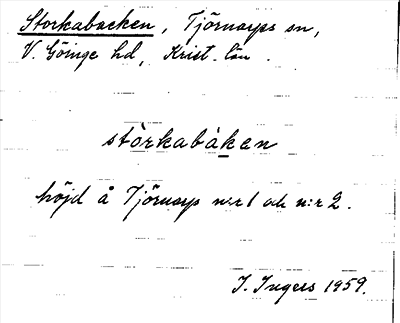 Storkabacken, Tjörnarps sn,
V. Göinge hd, Krist. län.
stòrkabàken
höjd å Tjörnarp n:r 1 och n:r 2.
I. Ingers 1959.